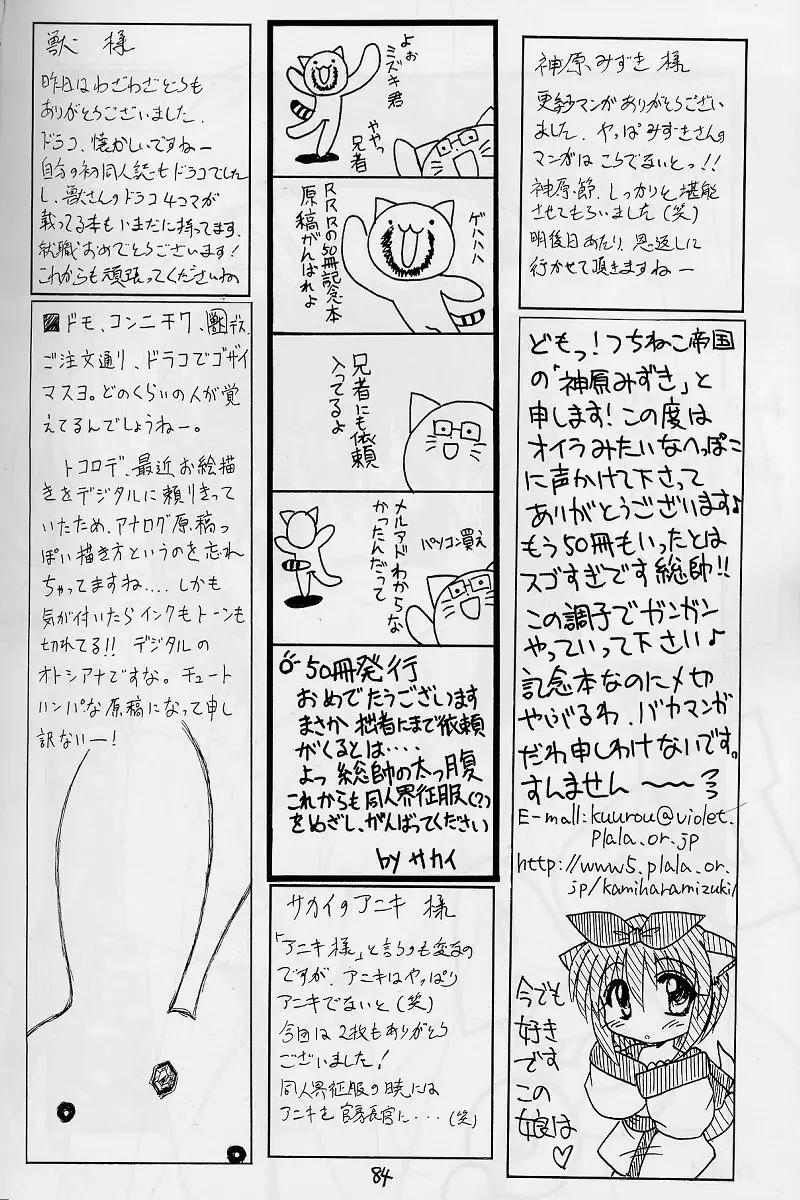 神原みずき 様
更紗マンガありがとうござい
ました。やっぱみずきさんの
マンガはこうでないとっ!!
神原節、しっかりと堪能
させてもらいました(笑)
明後日あたり、恩返しに
行かせて頂きますねー
どもっ!つちねこ帝国
の「神原みずき」と
申します!この度は
オイラみたいなへっぽこ
に声かけて下さって
ありがとうございます♪
もう50冊もいったとは
スゴすぎです総帥!!
この調子でガンガン
やっていって下さい♪
記念本なのに〆切
やぶるわ、バカマンガ
だわ申しわけないです。
すんません〜〜
E-mail:kuurou@violet.
plala.or.jp
http://www5.plala.or.
jp/kamiharamizuki/
今でも
好き
です
この
娘は
♡
よぉ
ミズキ君
ややっ
兄者
ゲハハハ
RRRの50冊記念本
原稿がんばれよ
兄者にも依頼
入ってるよ
メルアドわからな
かったんだって
パソコン買え
50冊発行
おめでたうございます
まさか拙者にまで依頼
がくるとは・・・・
よっ 総帥の太っ腹
これからも同人界征服(?)
をめざし、がんばってください
by サカイ
サカイのアニキ 様
「アニキ様」と言うのも変なの
ですが、アニキはやっぱり
アニキでないと(笑)
今回は2枚もありがとう
ございました!
同人界征服の暁には
アニキを官房長官に・・・(笑)
獣 様
昨日はわざわざどうも
ありがとうございました。
ドラコ、懐かしいですねー
自分の初同人誌もドラコでした
し、獣さんのドラコ4コマが
載ってる本もいまだに持ってます。
就職おめでとうございます!
これからも頑張ってくださいね
ドモ、コンニチワ、獣デス、
ご注文通り、ドラコでゴザイ
マスヨ。どのくらいの人が覚
えてるんでしょうねー。
トコロデ、最近お絵描
きをデジタルに頼りきって
いたため、アナログ原稿っ
ぽい描き方というのを忘れ
ちゃってますね.... しかも
気が付いたらインクもトーンも
切れてる!! デジタルの
オトシアナですな。チュート
ハンパな原稿になって申し
訳ないー!
84